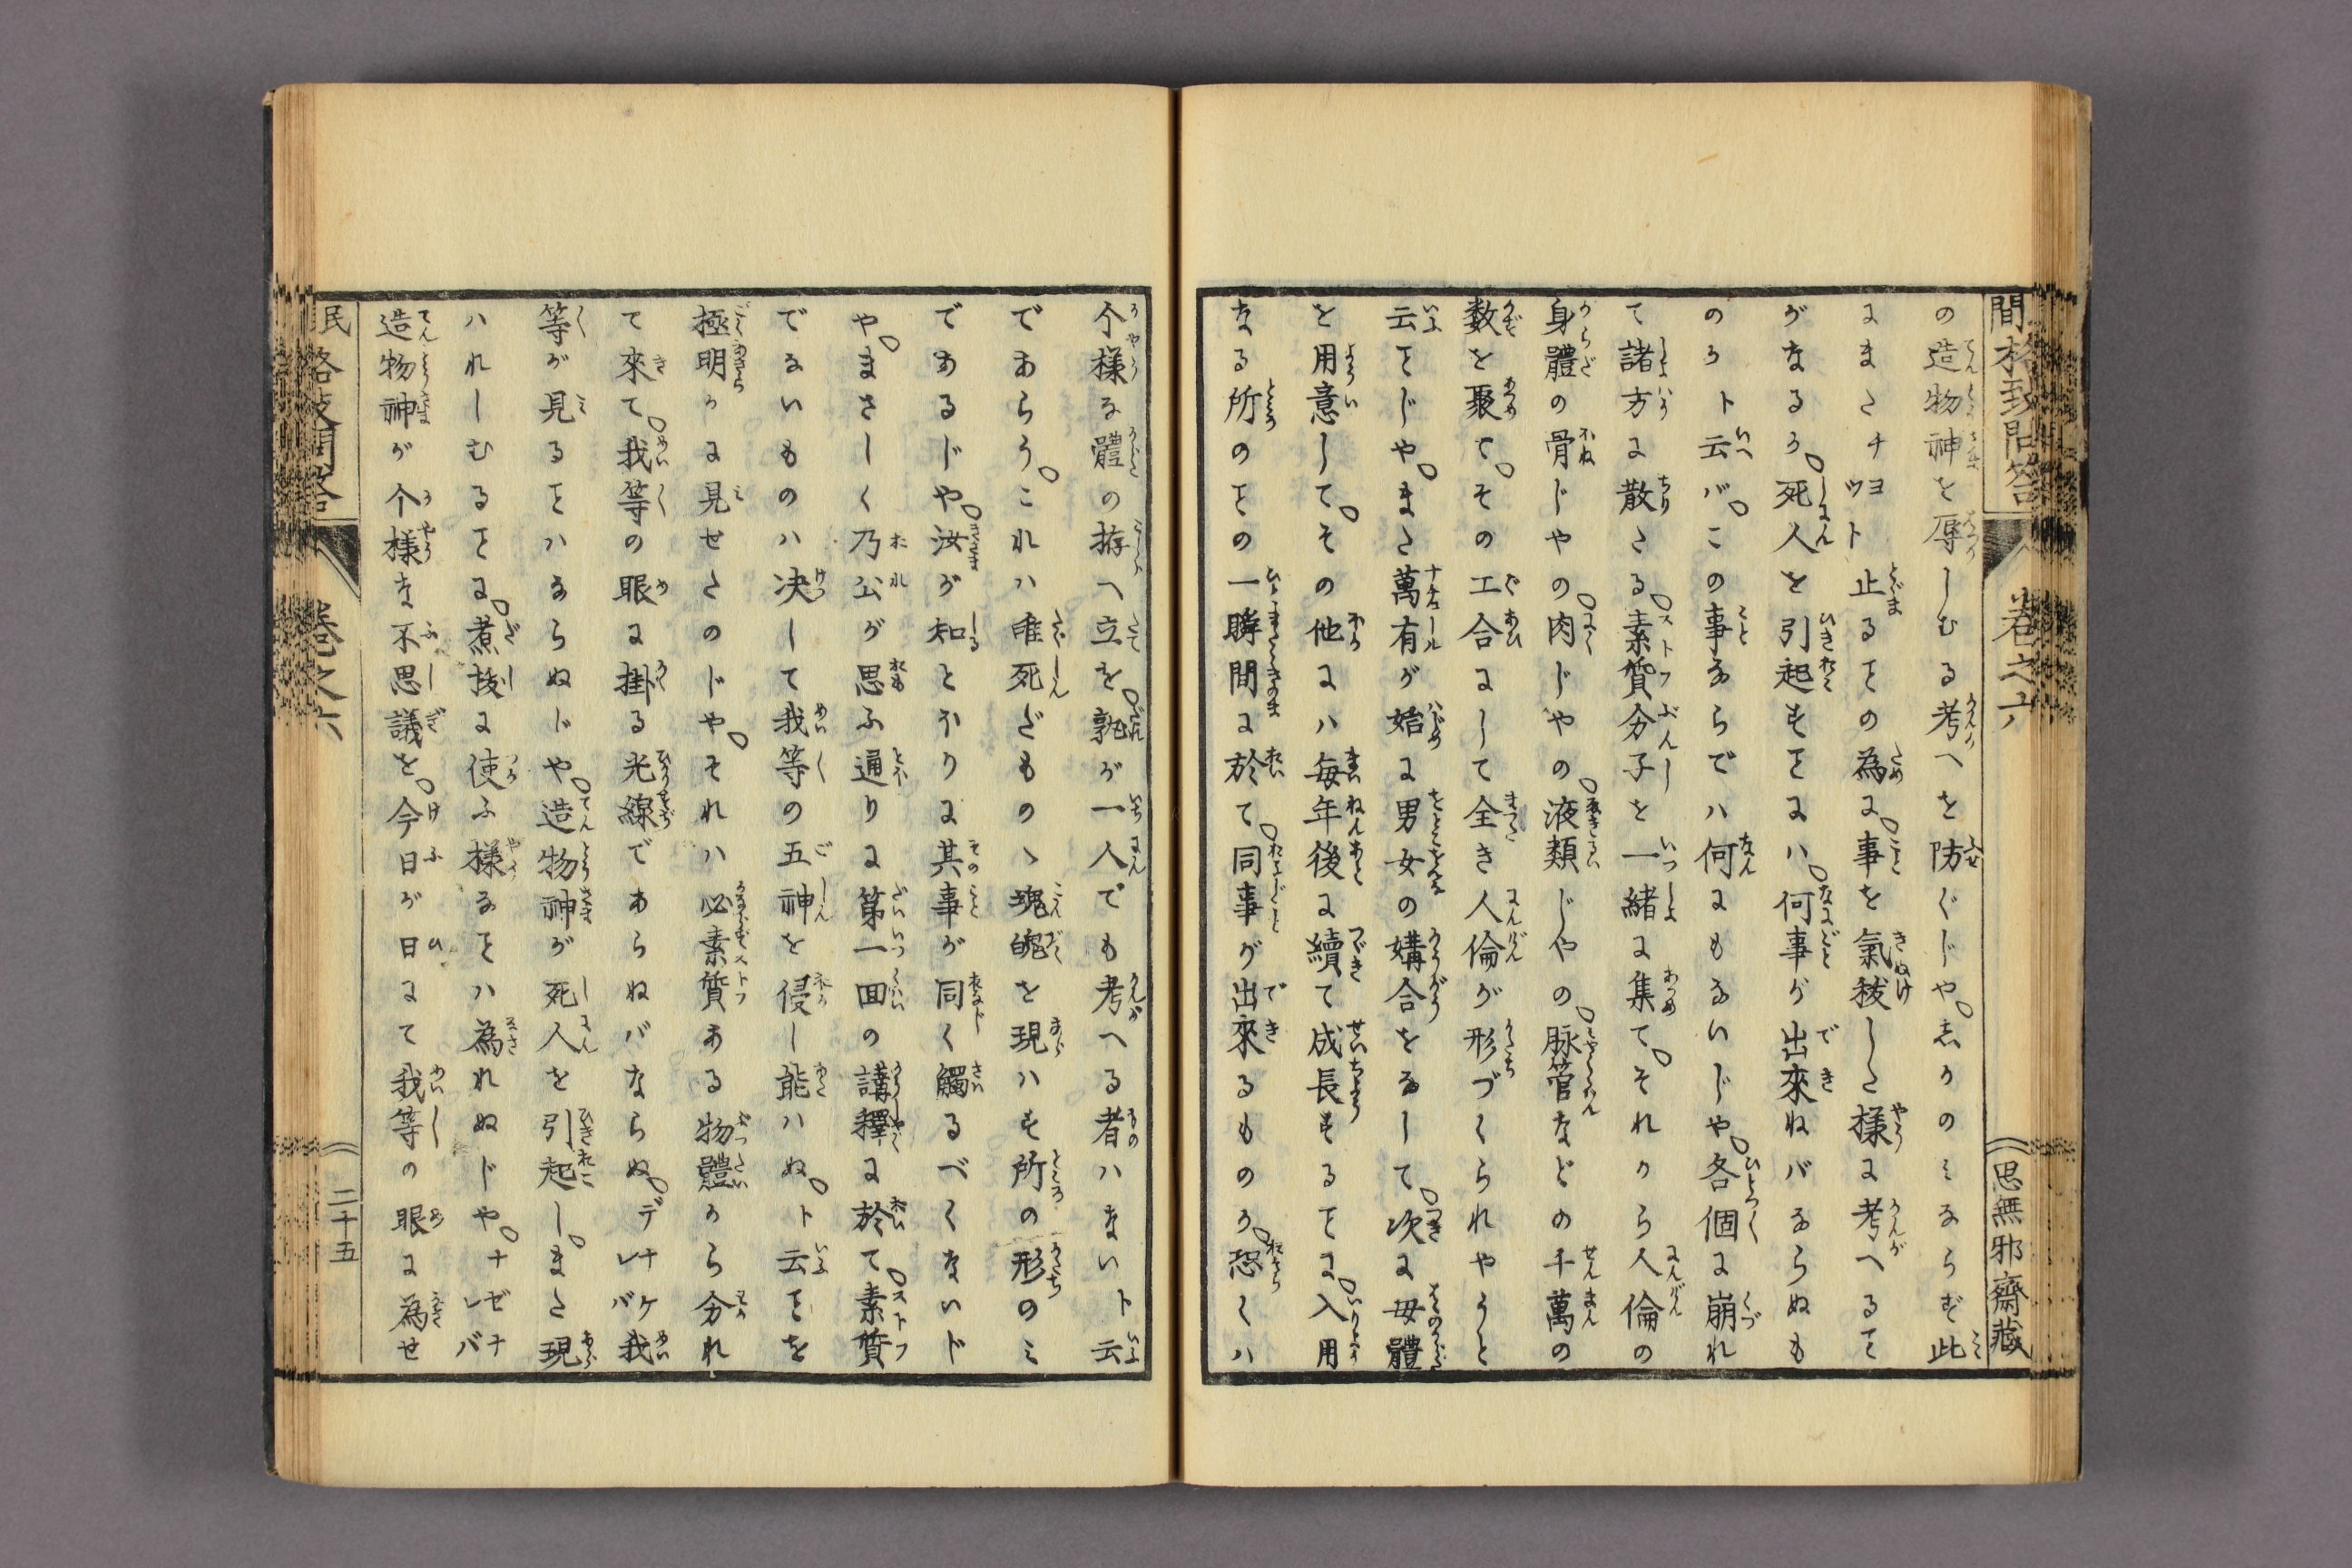 の造物神を辱しむる考へを防ぐじや。志かのミならず此
にまたチヨツト止るヿの為に。事を氣秡した様に考へるヿ
がなるか。死人を引起すヿにハ。何事が出來ねバならぬも
のかト云バ。この事ならでハ何にもないじや。各個に崩れ
て諸方に散たる。素質分子を一緒に集て。それから人倫の
身體の骨じやの。肉じやの。液類じやの。脉管などの千萬の
数を聚て。その工合にして全き人倫が形づくられやうと
云ヿじや。また萬有が始に男女の媾合をなして。次に母體
を用意して。その他にハ毎年後に續て成長するヿに。入用
なる所のヿの一瞬間に於て。同事が出來るものか。恐くハ
个様な體の拵へ立を。孰が一人でも考へる者ハまいト云
であらう。これハ唯死だものヽ魂魄を現ハす所の形のミ
であるじや。汝が知とふりに其事が同く觸るべくないド
や。まさしく乃公が思ふ通りに第一回の講釋に於て。素質
でないものハ决して我等の五神を侵し能ハぬ。ト云ヿを
極明かに見せたのじや。それハ必素質ある物體から分れ
て來て。我等の眼に掛る光線であらねバならぬ。デナケレバ我
等が見るヿハならぬじや。造物神が死人を引起し。また現
ハれしむるヿに。煮捘に使ふ様なヿハ為れぬじや。ナゼナレバ
造物神が个様な不思議を。今日が日にて我等の眼に為せ
間格致問答
巻之六
思無邪齋藏
民格致問答
巻之六
二十五